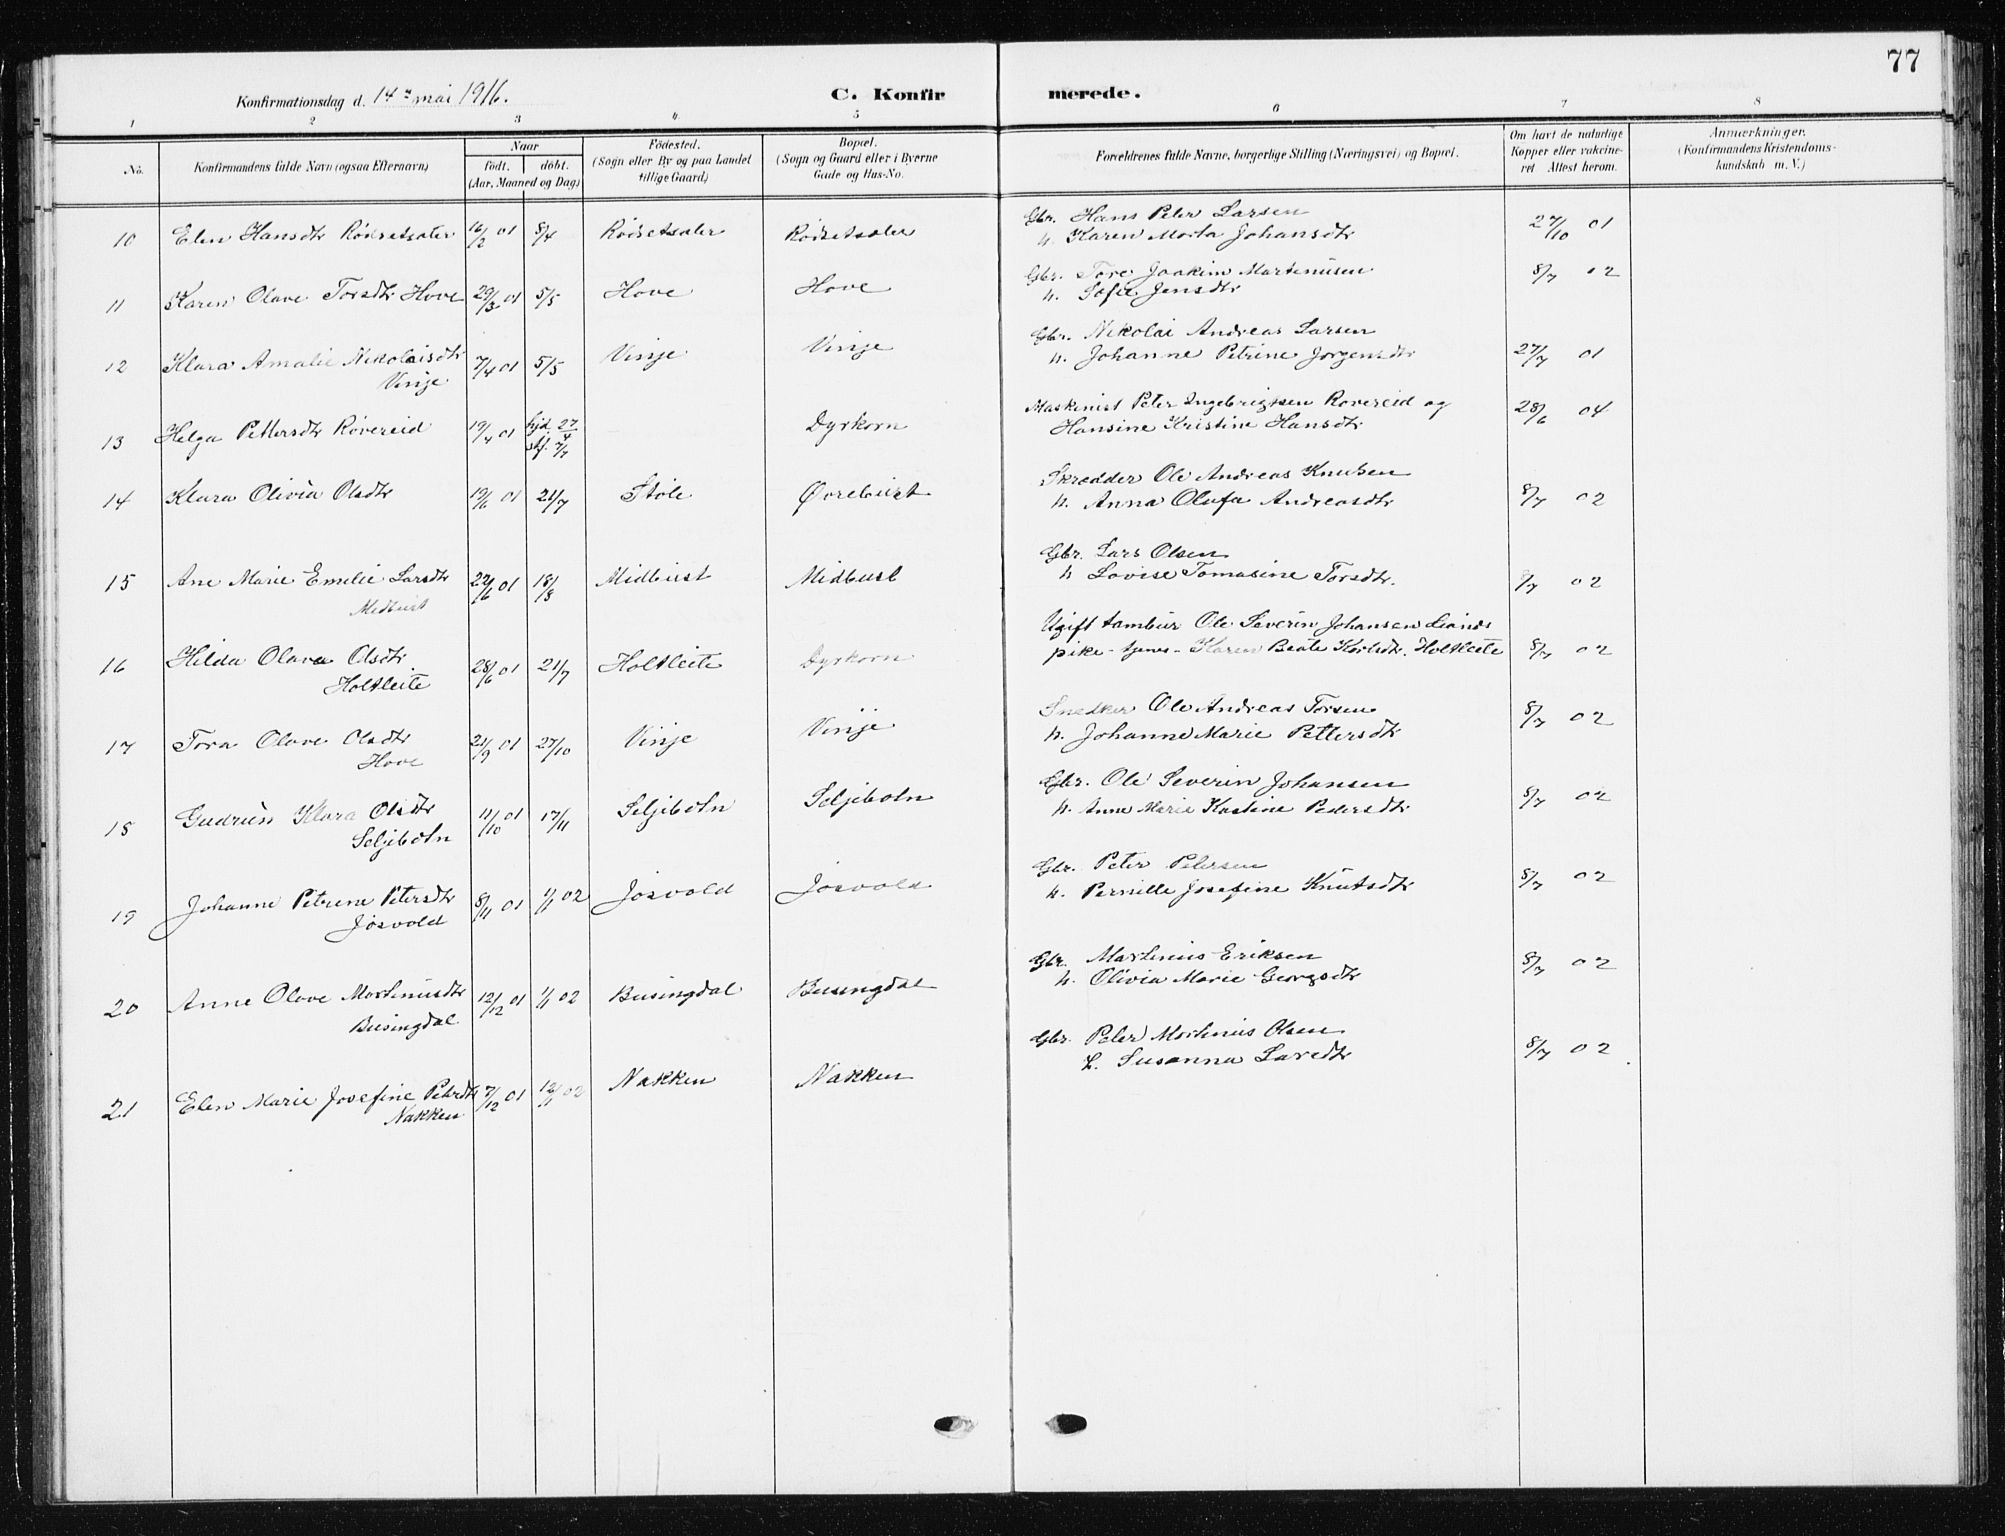 77
Konfirmationsdag d. 14de mai 1916.
C. Konfirmerede.
1 2 3 4 5 6 7 8
No.
Konfirmandens fulde Navn (ogsaa Efternavn)
Naar
født. døbt.
(Aar, Maaned og Dag)
Fødested.
(Sogn eller By og paa Landet
tillige Gaard)
Bopæl.
(Sogn og Gaard eller i Byerne
Gade og Hus-No.
Forældrenes fulde Navne, borgerlige Stilling (Næringsvei) og Bopæl.
Om havt de naturlige
Kopper eller vakcine-
ret Attest herom.
Anmærkninger.
(Konfirmandens Kristendoms-
kundskab m. V.)
10 Elen Hansdtr Rødsetsæter 16/2 01 8/4 Rødsetsæter Rødsetsæter Gbr. Hans Peter Larsen 27/10 01
h. Karen Marta Johansdtr
11 Karen Olave Torsdtr Hove 29/3 01 5/5 Hove Hove Gbr. Tore Joakim Martinusen 8/7 02
h. Sofie Jensdtr
12 Klara Amalie Nikolaisdtr 7/4 01 5/5 Vinje Vinje Gbr. Nikolai Andreas Larsen 27/7 01
Vinje h. Johanne Petrine Jørgensdtr
13 Helga Pettersdtr Røvereid 19/4 01 hjd. 27/4 Dyrkorn Maskinist Peter Ingebrigtsen Røvereid og 28/6 04
stf. 7/7 Hansine Kristine Hansdtr
14 Klara Olivia Olsdtr 19/6 01 21/7 Støle Ørebust Skrædder Ole Andreas Knutsen 8/7 02
h. Anna Olufa Andreasdtr
15 Ane Marie Emelie Larsdtr 22/6 01 18/8 Midtbust Midtbust Gbr. Lars Olsen 8/7 02
Midtbust h. Lovise Tomasine Torsdtr.
16 Hilda Olava Olsdtr. 28/6 01 21/7 Holtleite Dyrkorn Ugift tambur Ole Severin Johansen Liands
Holtleite pike - tjenes - Karen Beate Karlsdtr. Holtleite 8/7 02
17 Tora Olave Olsdtr 21/9 01 27/10 Vinje Vinje Snedker Ole Andreas Torsen 8/7 02
Hove h. Johanne Marie Pettersdtr
18 Gudrun Klara Olsdtr 11/10 01 17/11 Seljebotn Seljebotn Gbr. Ole Severin Johansen 8/7 02
Seljebotn h. Anne Marie Kastine Pedersdtr
19 Johanne Petrine Petersdtr 8/11 01 1/1 02 Jøsvold Jøsvold Gbr. Peter Petersen 8/7 02
Jøsvold h. Pernille Josefine Knutsdtr
20 Anne Olave Martinusdtr 12/12 01 1/1 02 Busingdal Busingdal Gbr. Martinus Eriksen 8/7 02
Busingdal h. Olivia Marie Georgsdtr
21 Elen Marie Josefine Petersdtr 7/12 01 12/1 02 Nakken Nakken Gbr. Peter Martinus Olsen 8/7 02
Nakken h. Susanna Larsdtr